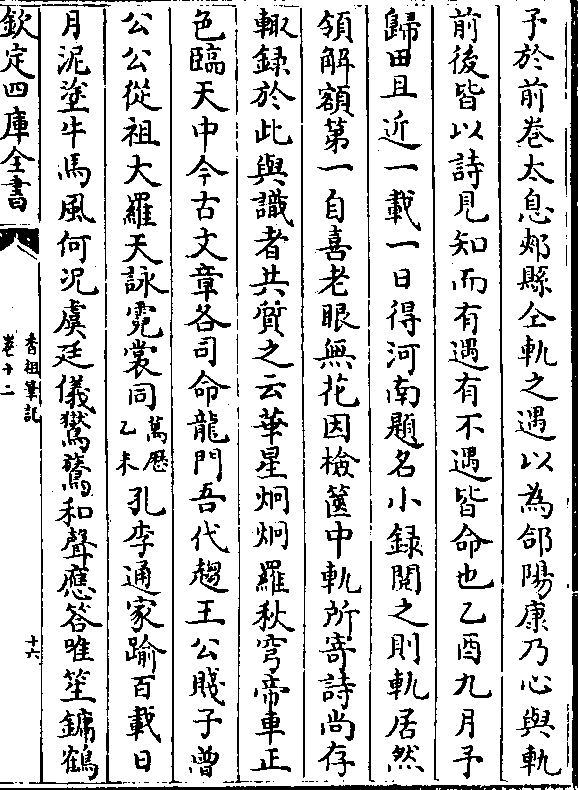 予於前巻太息郟縣仝軌之遇以為郃陽康乃心與軌
前後皆以詩見知而有遇有不遇皆命也乙酉九月予
歸田且近一載一日得河南題名小録閱之則軌居然
領解額第一自喜老眼無花因檢篋中軌所寄詩尚存
輙録於此與識者共質之云華星炯炯羅秋穹帝車正
色臨天中今古文章各司命龍門吾代趨王公賤子曾
公公從祖大羅天詠霓裳同萬歷乙未孔李通家踰百載日
月泥塗牛馬風何况虞廷儀鸑鷟和聲應答唯笙鏞鶴
欽定四庫全書
香祖筆記
卷十二
十六